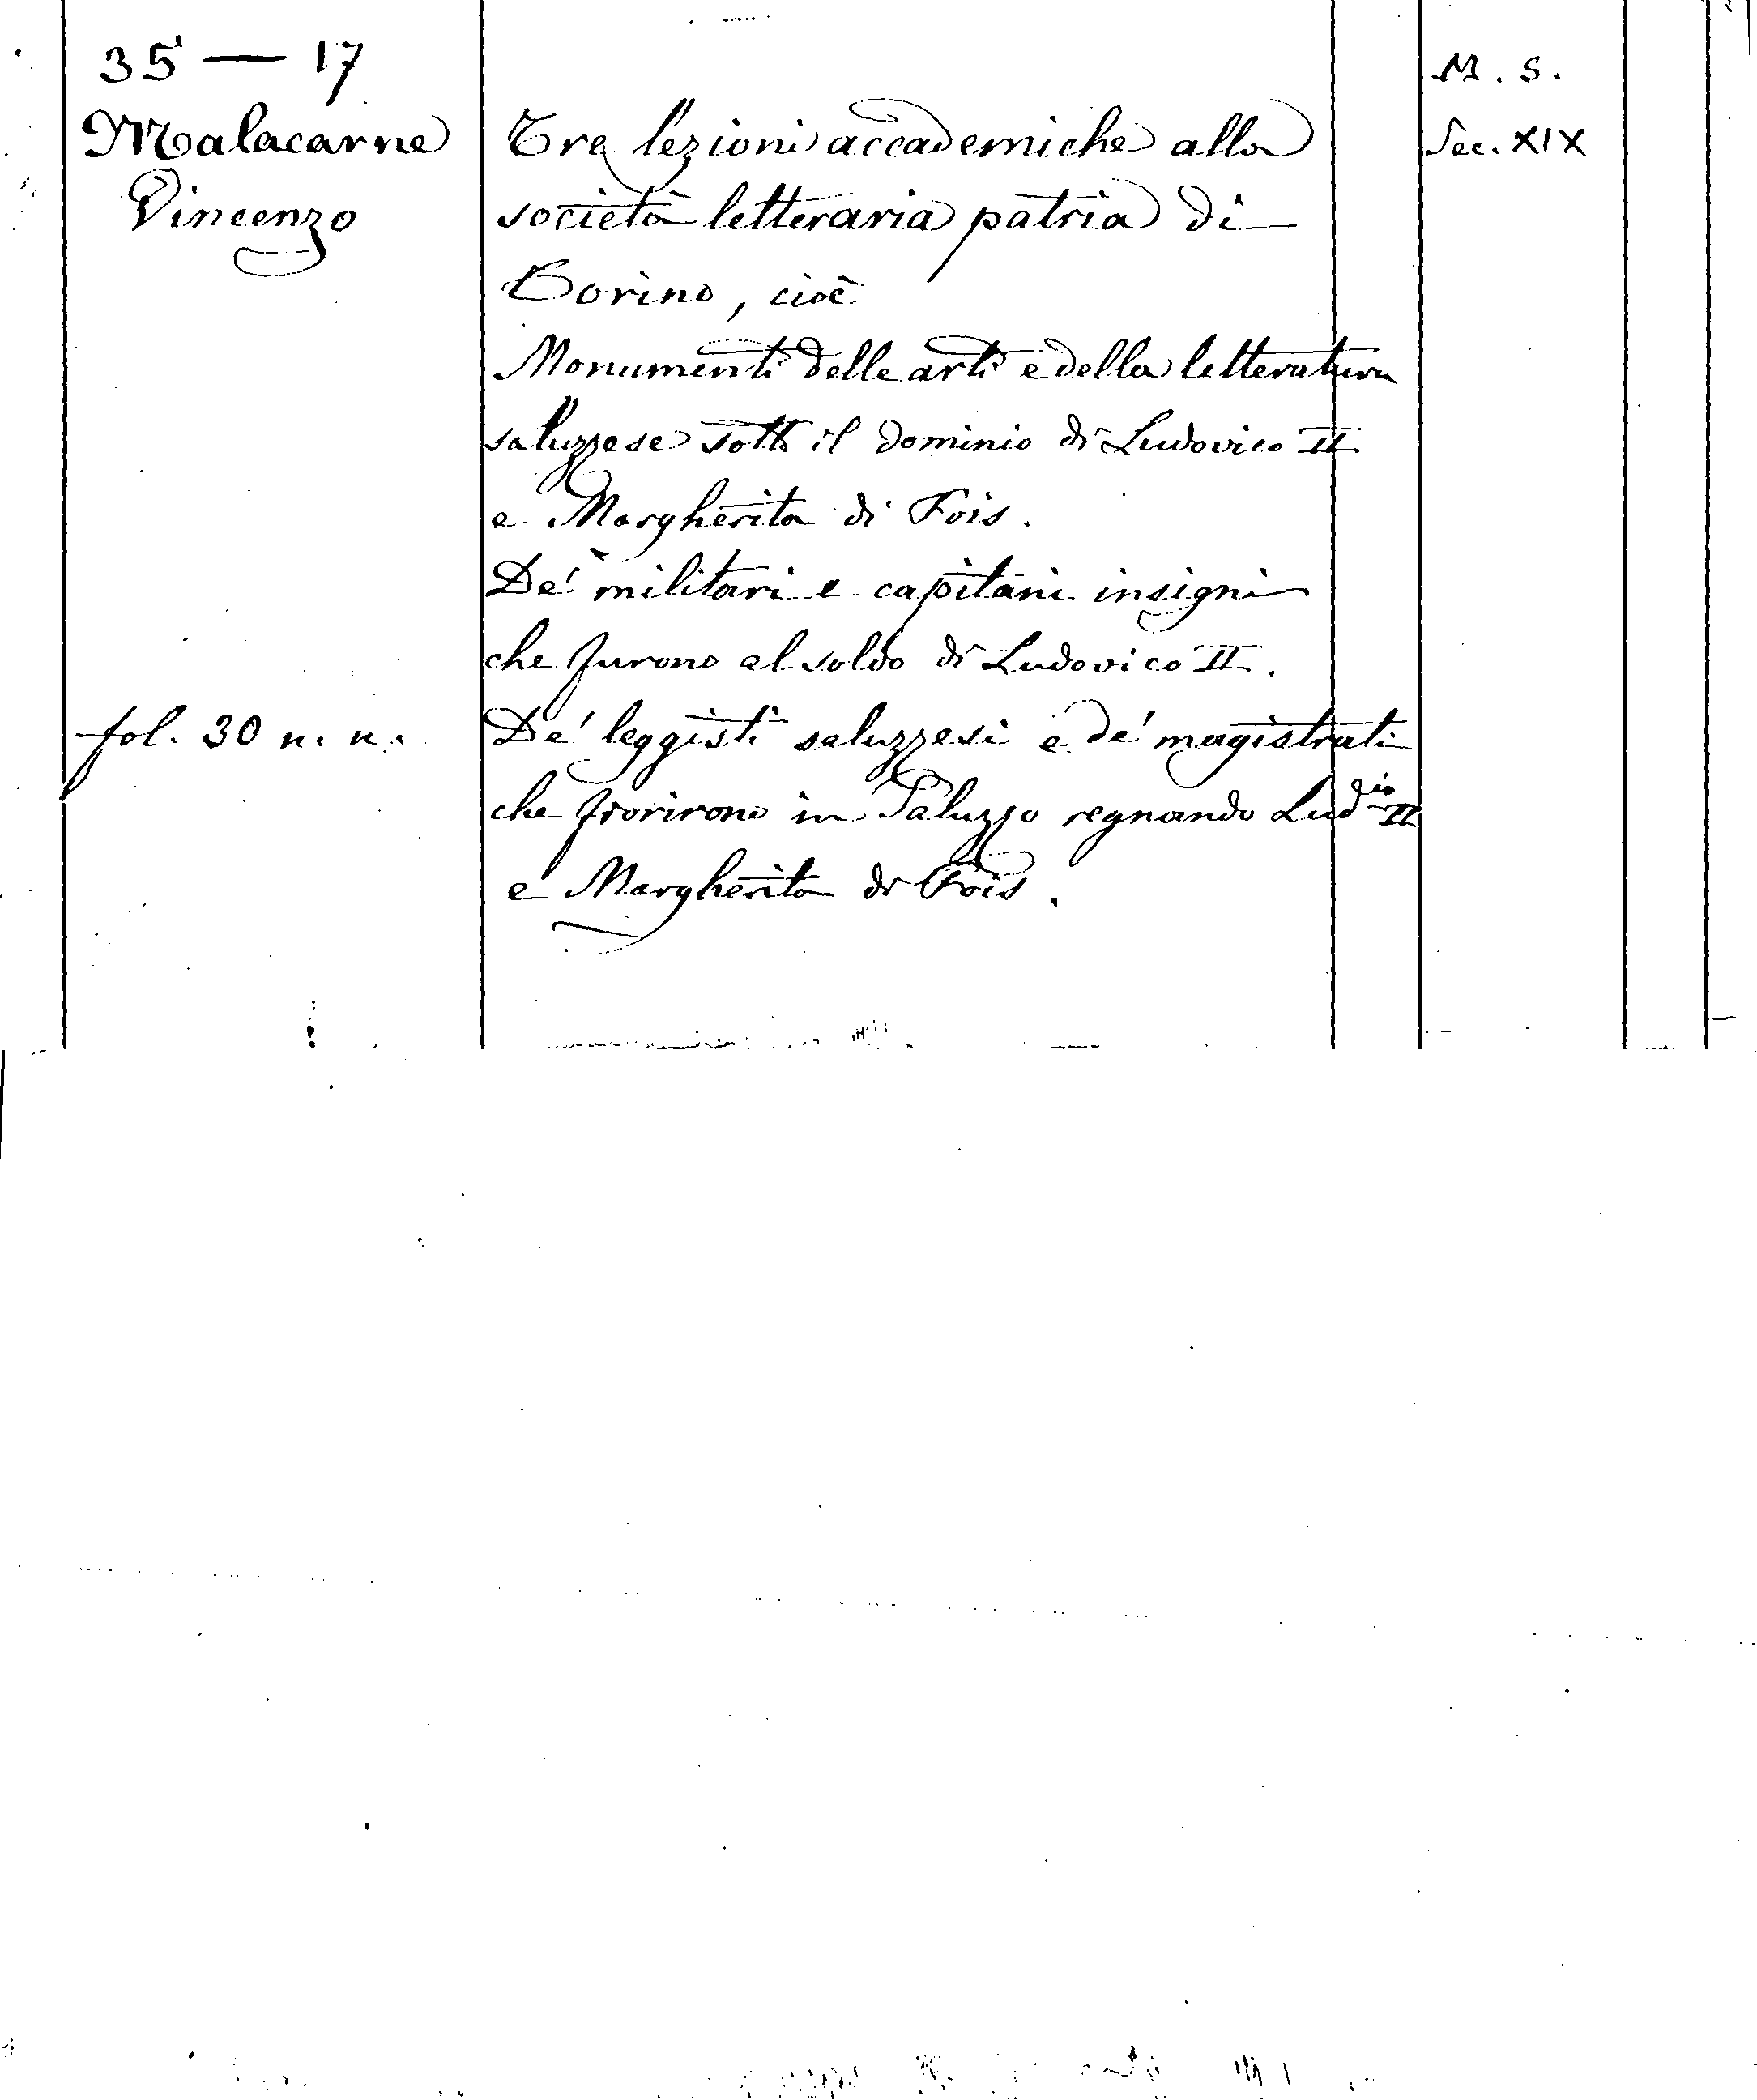 35 — 17
Malacarne
Vincenzo
fol. 30 n. n.
Tre lezioni accademiche alla
società letteraria patria di
Torino, cioè
Monumenti delle arti e della letteratura
saluzzese sotto il dominio di Ludovico II
e Margherita di Fois.
De' militari e capitani insigni
che furono al soldo di Ludovico II.
De' leggisti saluzzesi e de' magistrati
che fiorirono in Saluzzo regnando Lud.io II
e Margherita di Fois.
M. S.
Sec. XIX